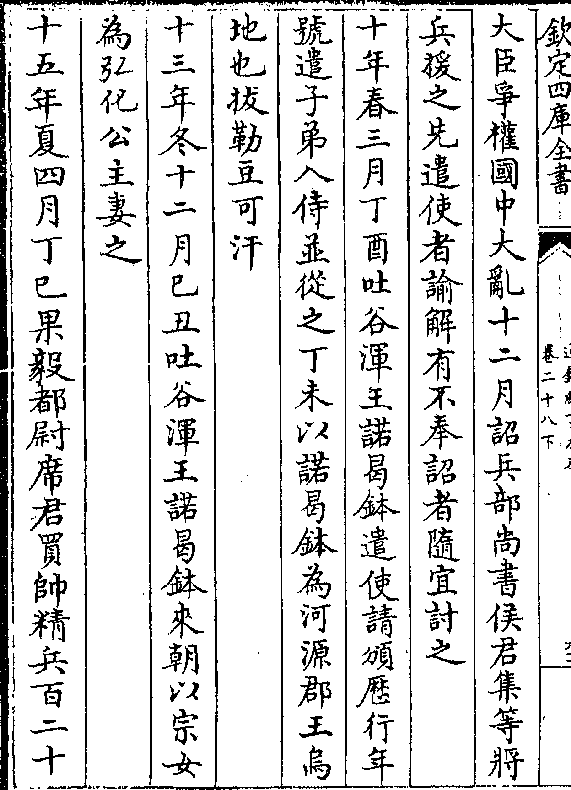 欽定四庫全書
卷二十八下
大臣爭權國中大亂十二月詔兵部尚書侯君集等將
兵援之先遣使者諭解有不奉詔者隨宜討之
十年春三月丁酉吐谷渾王諾曷鉢遣使請頒厯行年
號遣子弟入侍並從之丁未以諾曷鉢為河源郡王烏
地也拔勒豆可汗
十三年冬十二月已丑吐谷渾王諾曷鉢來朝以宗女
為弘化公主妻之
十五年夏四月丁巳果毅都尉席君買帥精兵百二十